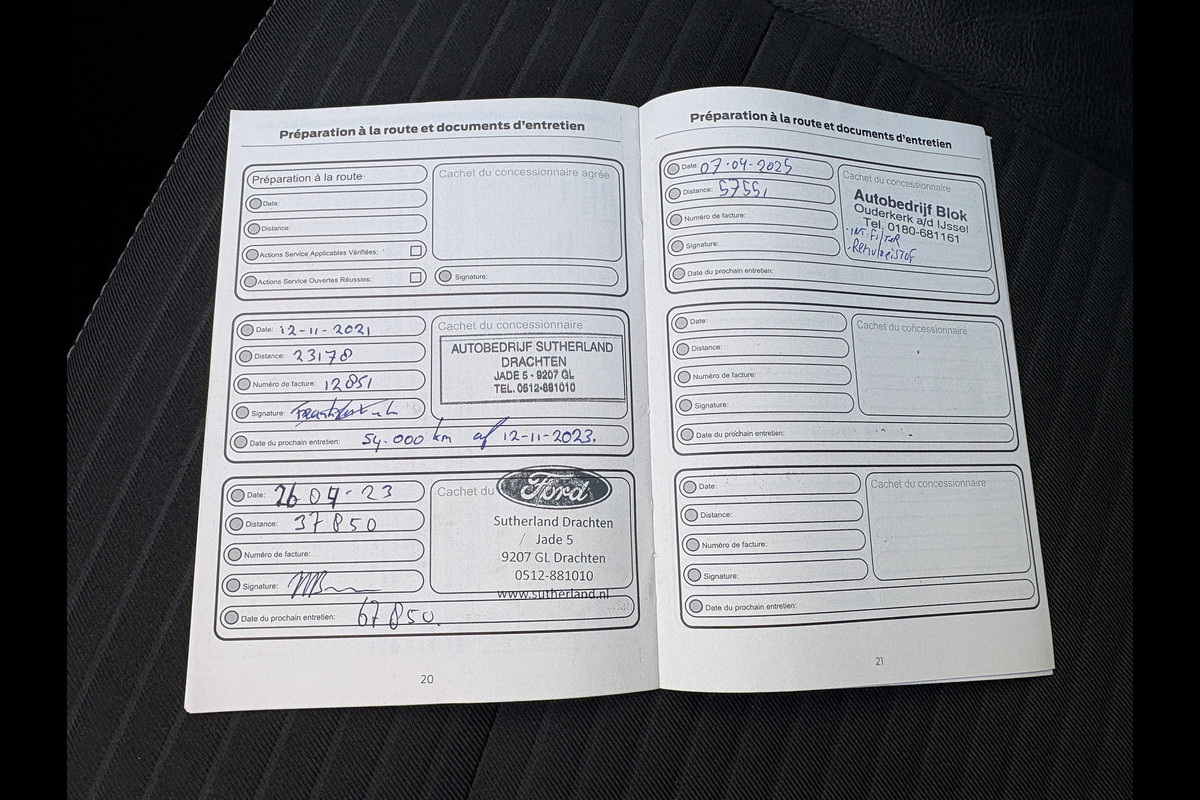 Préparation à la route et documents d'entretien
Préparation à la route
Date:
Distance:
Actions Service Applicables Vérifiées:
Actions Service Ouvertes Réussies:
Cachet du concessionnaire agréé
Signature:
Date: 12-11-2021
Distance: 23178
Numéro de facture: 12851
Signature:
Date du prochain entretien: 54.000 km of 12-11-2023.
Cachet du concessionnaire
AUTOBEDRIJF SUTHERLAND
DRACHTEN
JADE 5 - 9207 GL
TEL. 0512-881010
Date: 26 04-23
Distance: 37850
Numéro de facture:
Signature:
Date du prochain entretien: 67850.
Cachet du
Ford
Sutherland Drachten
Jade 5
9207 GL Drachten
0512-881010
www.sutherland.nl
20
Préparation à la route et documents d'entretien
Date: 07-04-2025
Distance: 57551
Numéro de facture:
Signature:
Date du prochain entretien:
Cachet du concessionnaire
Autobedrijf Blok
Ouderkerk a/d IJssel
Tel. 0180-681161
-INT. FILTER
-REMVLOEISTOF
Date:
Distance:
Numéro de facture:
Signature:
Date du prochain entretien:
Cachet du concessionnaire
Date:
Distance:
Numéro de facture:
Signature:
Date du prochain entretien:
Cachet du concessionnaire
21